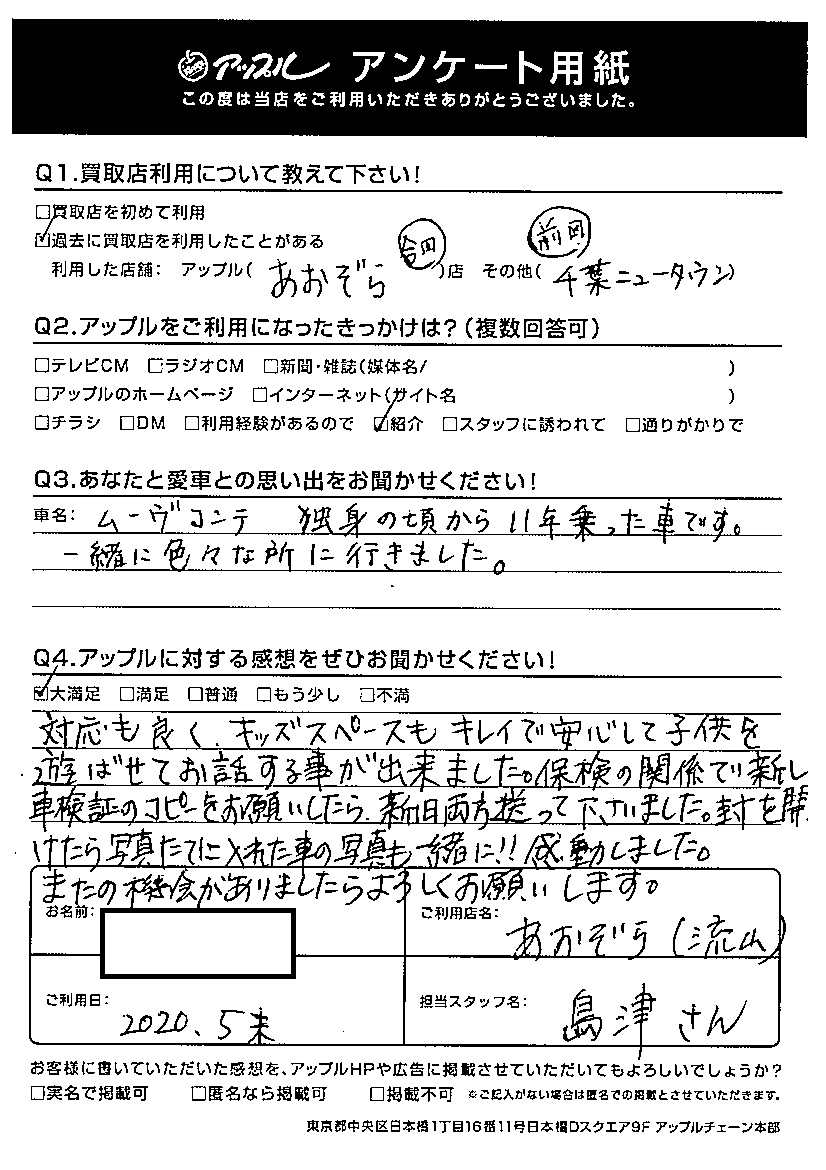 アップル アンケート用紙
この度は当店をご利用いただきありがとうございました。
Q1.買取店利用について教えて下さい!
□買取店を初めて利用
☑過去に買取店を利用したことがある 今回 前回
利用した店舗: アップル( あおぞら )店 その他( 千葉ニュータウン)
Q2.アップルをご利用になったきっかけは?(複数回答可)
□テレビCM □ラジオCM □新聞・雑誌(媒体名/ )
□アップルのホームページ □インターネット(サイト名 )
□チラシ □DM □利用経験があるので ☑紹介 □スタッフに誘われて □通りがかりで
Q3.あなたと愛車との思い出をお聞かせください!
車名: ムーヴコンテ 独身の頃から11年乗った車です。
一緒に色々な所に行きました。
Q4.アップルに対する感想をぜひお聞かせください!
☑大満足 □満足 □普通 □もう少し □不満
対応も良く、キッズスペースもキレイで安心して子供を
遊ばせてお話する事が出来ました。保検の関係で新し
車検証のコピーをお願いしたら、新旧両方送って下さいました。封を開
けたら写真たてに入れた車の写真も一緒に!!感動しました。
またの機会がありましたらよろしくお願いします。
お名前:
ご利用店名:
あおぞら(流山)
ご利用日:
2020、5末
担当スタッフ名:
島津さん
お客様に書いていただいた感想を、アップルHPや広告に掲載させていただいてもよろしいでしょうか?
□実名で掲載可 □匿名なら掲載可 □掲載不可 ※ご記入がない場合は匿名での掲載とさせていただきます。
東京都中央区日本橋1丁目16番11号日本橋Dスクエア9F アップルチェーン本部